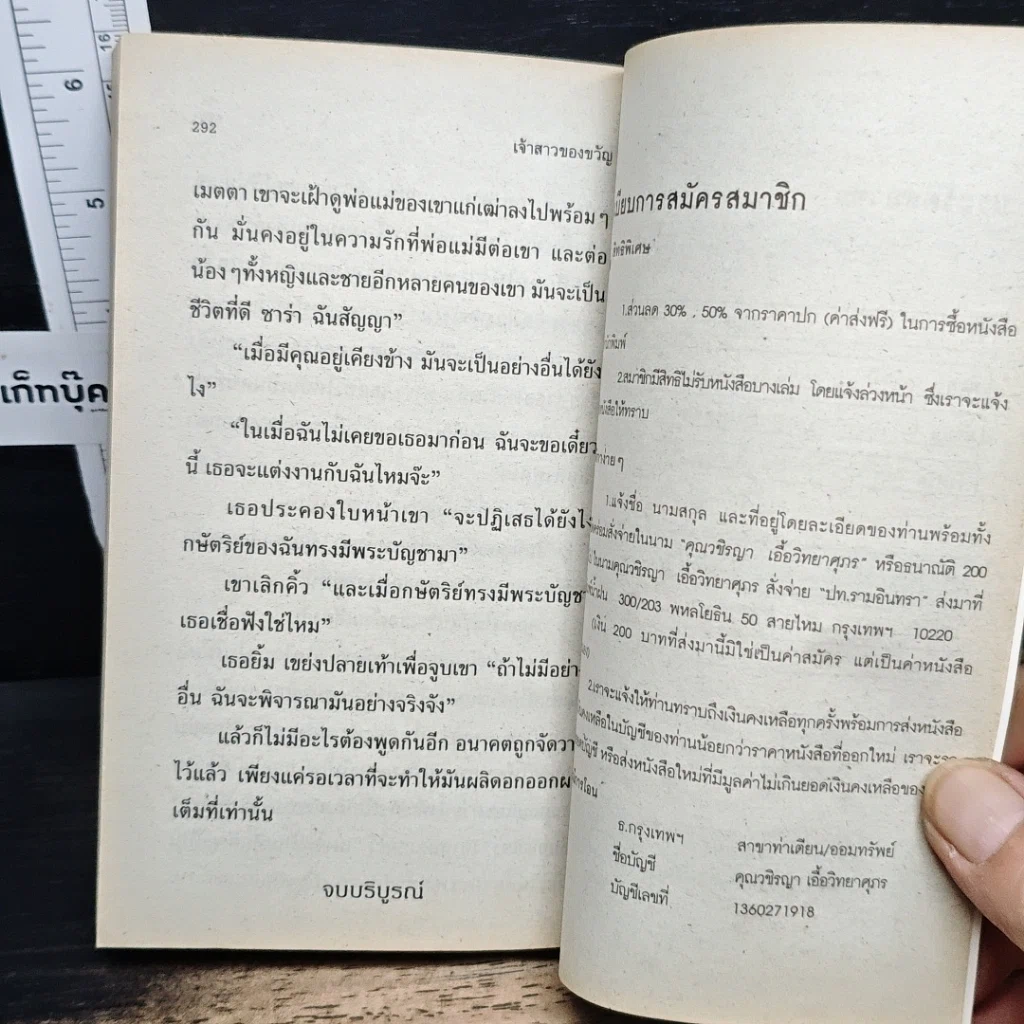 6
16
5
เก็ทบุ๊ค
292
เจ้าสาวของขวัญ
เมตตา เขาจะเฝ้าดูพ่อแม่ของเขาแก่เฒ่าลงไปพร้อมๆ
กัน มั่นคงอยู่ในความรักที่พ่อแม่มีต่อเขา และต่อ
น้องๆทั้งหญิงและชายอีกหลายคนของเขา มันจะเป็น
ชีวิตที่ดี ซาร่า ฉันสัญญา”
“เมื่อมีคุณอยู่เคียงข้าง มันจะเป็นอย่างอื่นได้ยัง
ไง”
“ในเมื่อฉันไม่เคยขอเธอมาก่อน ฉันจะขอเดี๋ยว
นี้ เธอจะแต่งงานกับฉันไหมจ๊ะ”
เธอประคองใบหน้าเขา “จะปฏิเสธได้ยังไง
กษัตริย์ของฉันทรงมีพระบัญชามา”
เขาเลิกคิ้ว “และเมื่อกษัตริย์ทรงมีพระบัญชา
เธอเชื่อฟังใช่ไหม”
เธอยิ้ม เขย่งปลายเท้าเพื่อจูบเขา “ถ้าไม่มีอย่าง
อื่น ฉันจะพิจารณามันอย่างจริงจัง”
แล้วก็ไม่มีอะไรต้องพูดกันอีก อนาคตถูกจัดวาง
ไว้แล้ว เพียงแค่รอเวลาที่จะทำให้มันผลิดอกออกผล
เต็มที่เท่านั้น
จบบริบูรณ์
บียบการสมัครสมาชิก
ทธิพิเศษ
1.ส่วนลด 30% , 50% จากราคาปก (ค่าส่งฟรี) ในการซื้อหนังสือ
พิมพ์
2.สมาชิกมีสิทธิไม่รับหนังสือบางเล่ม โดยแจ้งล่วงหน้า ซึ่งเราจะแจ้ง
หนังสือให้ทราบ
ง่ายๆ
1.แจ้งชื่อ นามสกุล และที่อยู่โดยละเอียดของท่านพร้อมทั้ง
พร้อมสั่งจ่ายในนาม “คุณวชิรญา เอื้อวิทยาศุภร” หรือธนาณัติ 200
ในนามคุณวชิรญา เอื้อวิทยาศุภร สั่งจ่าย “ปท.รามอินทรา” ส่งมาที่
น้ำฝน 300/203 พหลโยธิน 50 สายไหม กรุงเทพฯ 10220
(เงิน 200 บาทที่ส่งมานี้มิใช่เป็นค่าสมัคร แต่เป็นค่าหนังสือ
2.เราจะแจ้งให้ท่านทราบถึงเงินคงเหลือทุกครั้งพร้อมการส่งหนังสือ
คงเหลือในบัญชีของท่านน้อยกว่าราคาหนังสือที่ออกใหม่ เราจะ
บัญชี หรือส่งหนังสือใหม่ที่มีมูลค่าไม่เกินยอดเงินคงเหลือของ
การโอน
ธ.กรุงเทพฯ สาขาท่าเตียน/ออมทรัพย์
ชื่อบัญชี คุณวชิรญา เอื้อวิทยาศุภร
บัญชีเลขที่ 1360271918